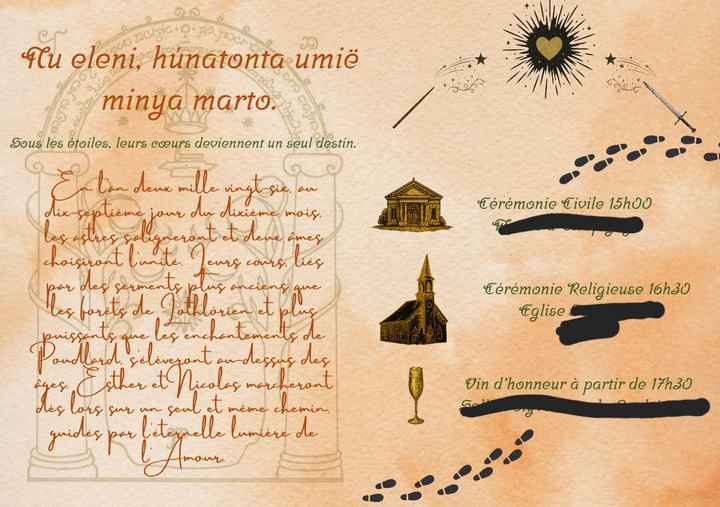 Nu eleni, húnatonta umië
minya marto.
Sous les étoiles, leurs cœurs deviennent un seul destin.
En l'an deux mille vingt-six, au
dix-septième jour du dixième mois,
les astres s'aligneront et deux âmes
choisiront l'unité. Leurs cœurs, liés
par des serments plus anciens que
les forêts de Lothlórien et plus
puissants que les enchantements de
Poudlard, s'élèveront au-dessus des
âges. Esther et Nicolas marcheront
dès lors sur un seul et même chemin,
guidés par l'éternelle lumière de
l'Amour.
Cérémonie Civile 15h00
Cérémonie Religieuse 16h30
Eglise
Vin d'honneur à partir de 17h30